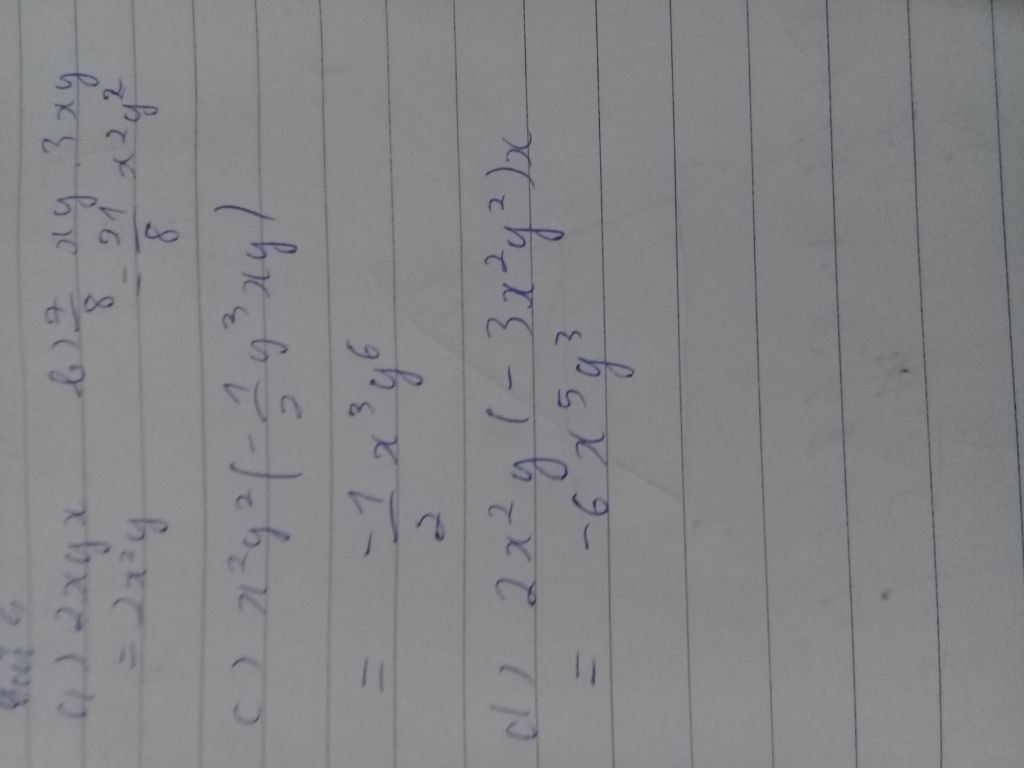 Bài 6
a) 2xyx   b) 7/8 xy 3xy
= 2x²y   = 21/8 x²y²
c) x²y² (-1/2 y³xy)
= -1/2 x³y⁶
d) 2x²y (-3x²y²)x
= -6x⁵y³